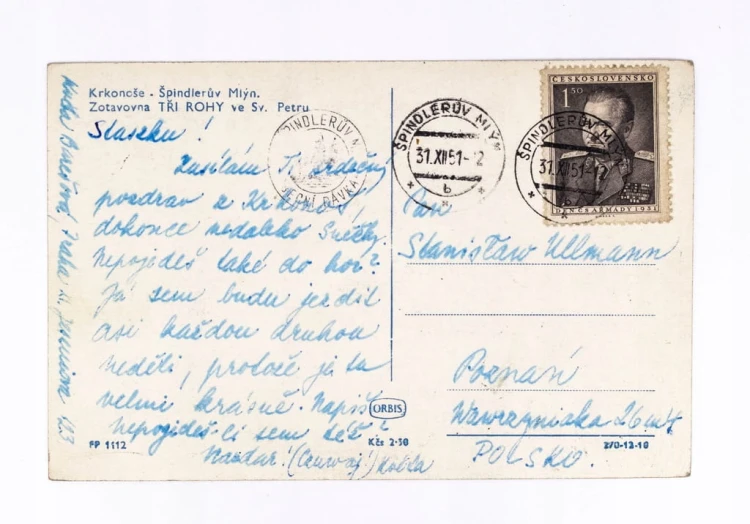 Krkonoše - Špindlerův Mlýn.
Zotavovna TŘI ROHY ve Sv. Petru
Staszku!
Zasílám Ti srdečný
pozdrav z Krkonoš,
dokonce nedaleko Sněžky.
Nepojedeš také do hor?
Já sem budu jezdit
asi každou druhou
neděli, protože je tu
velmi krásně. Napiš
nepojedeš-li sem též?
Nazdar! (Czuwaj)
Praha
ŠPINDLERŮV MLÝN
31.XII.51-12
b
ŠPINDLERŮV MLÝN
31.XII.51-12
b
ČESKOSLOVENSKO
1.50
DEN ČS. ARMÁDY 1951
Pan
Stanisław Ullmann
Poznań
Wawrzyniaka 26 m 4
POLSKO.
FP 1112
ORBIS
Kčs 2·50